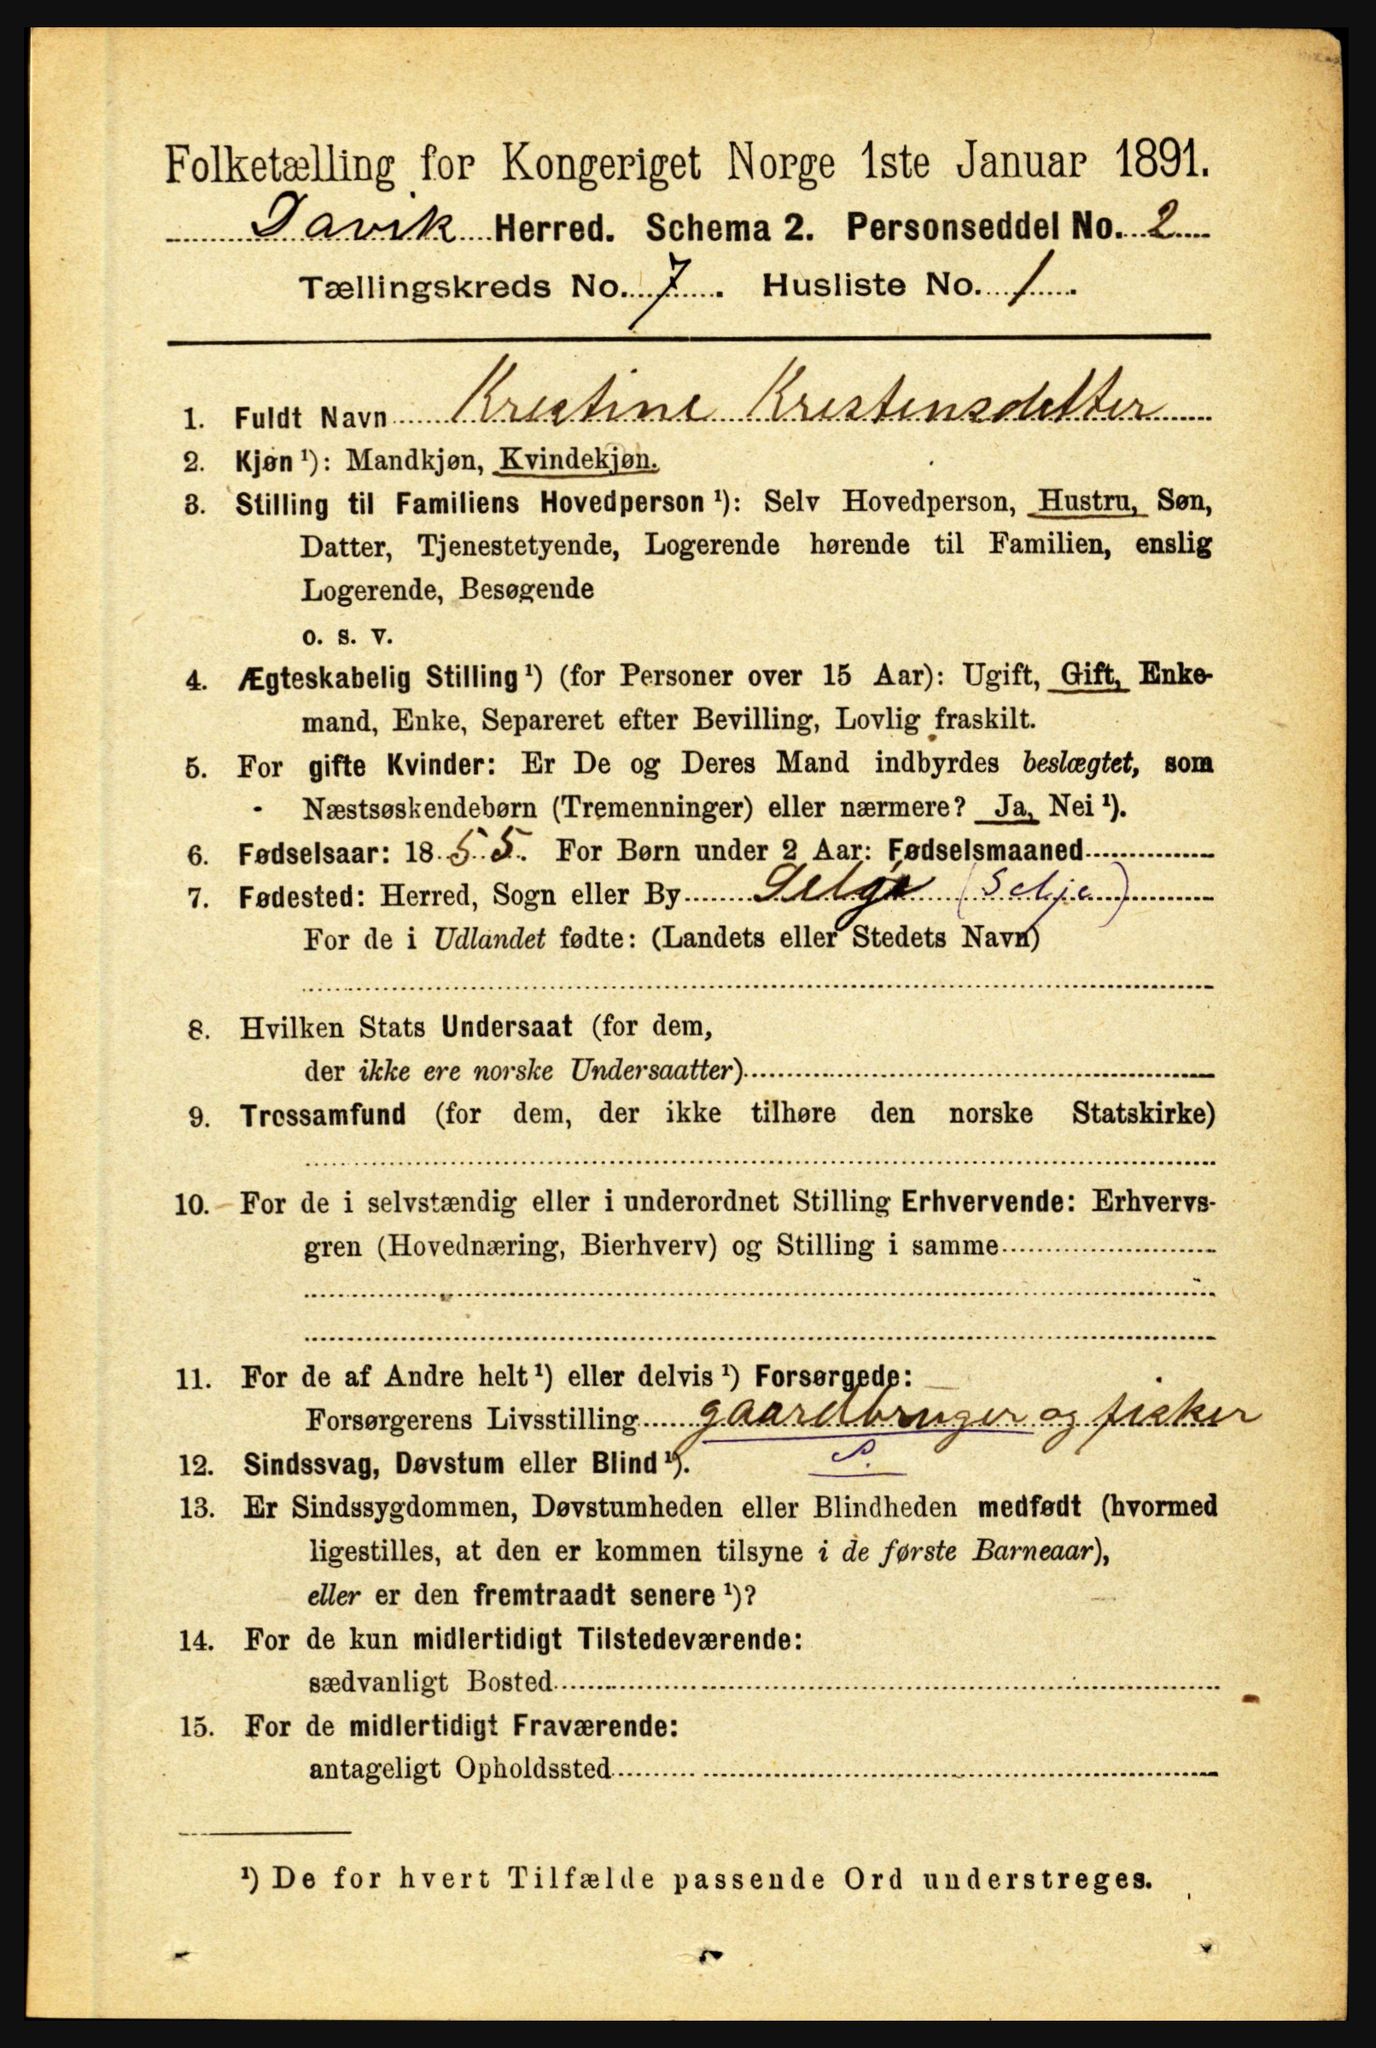 Folketælling for Kongeriget Norge 1ste Januar 1891.
Davik Herred. Schema 2. Personseddel No. 2
Tællingskreds No. 7. Husliste No. 1.
1. Fuldt Navn Kristine Kristensdatter
2. Kjøn ¹): Mandkjøn, Kvindekjøn.
3. Stilling til Familiens Hovedperson ¹): Selv Hovedperson, Hustru, Søn,
Datter, Tjenestetyende, Logerende hørende til Familien, enslig
Logerende, Besøgende
o. s. v.
4. Ægteskabelig Stilling ¹) (for Personer over 15 Aar): Ugift, Gift, Enke-
mand, Enke, Separeret efter Bevilling, Lovlig fraskilt.
5. For gifte Kvinder: Er De og Deres Mand indbyrdes beslægtet, som
Næstsøskendebørn (Tremenninger) eller nærmere? Ja, Nei ¹).
6. Fødselsaar: 1855. For Børn under 2 Aar: Fødselsmaaned
7. Fødested: Herred, Sogn eller By Selge (Selje)
For de i Udlandet fødte: (Landets eller Stedets Navn)
8. Hvilken Stats Undersaat (for dem,
der ikke ere norske Undersaatter)
9. Trossamfund (for dem, der ikke tilhøre den norske Statskirke)
10. For de i selvstændig eller i underordnet Stilling Erhvervende: Erhvervs-
gren (Hovednæring, Bierhverv) og Stilling i samme
11. For de af Andre helt ¹) eller delvis ¹) Forsørgede:
Forsørgerens Livsstilling gaardbruger og fisker
12. Sindssvag, Døvstum eller Blind ¹). S.
13. Er Sindssygdommen, Døvstumheden eller Blindheden medfødt (hvormed
ligestilles, at den er kommen tilsyne i de første Barneaar),
eller er den fremtraadt senere ¹)?
14. For de kun midlertidigt Tilstedeværende:
sædvanligt Bosted
15. For de midlertidigt Fraværende:
antageligt Opholdssted
¹) De for hvert Tilfælde passende Ord understreges.